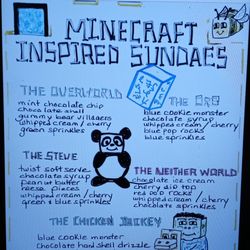 MINECRAFT
INSPIRED SUNDAES
THE OVERWORLD
mint chocolate chip
chocolate shell
gummy bear villagers
whipped cream / cherry
green sprinkles
THE ORE
blue cookie monster
chocolate syrup
whipped cream / cherry
blue pop rocks
blue sprinkles
THE STEVE
twist soft serve
chocolate syrup
peanut butter
reese pieces
whipped cream / cherry
green & blue sprinkles
THE NEITHER WORLD
chocolate ice cream
cherry dip top
red pop rocks
whipped cream / cherry
chocolate sprinkles
THE CHICKEN JOCKEY
blue cookie monster
chocolate hard shell drizzle